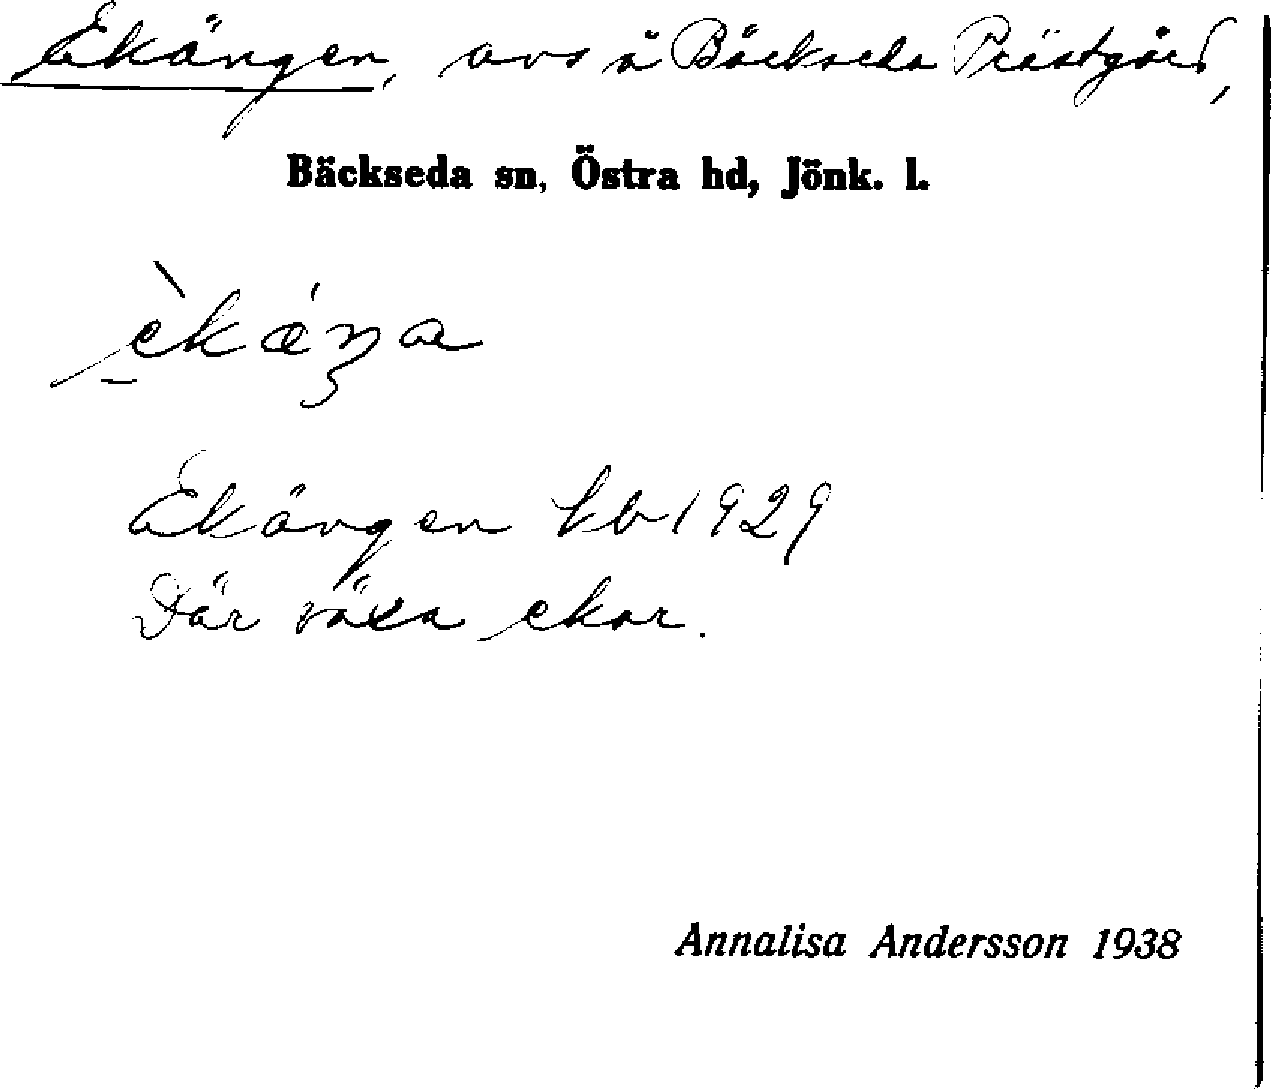 Ekängen, avs å Bäckseda Prästgård,
Bäckseda sn, Östra hd, Jönk. l.
Ekängen kb 1929
Där växa ekar.
Annalisa Andersson 1938